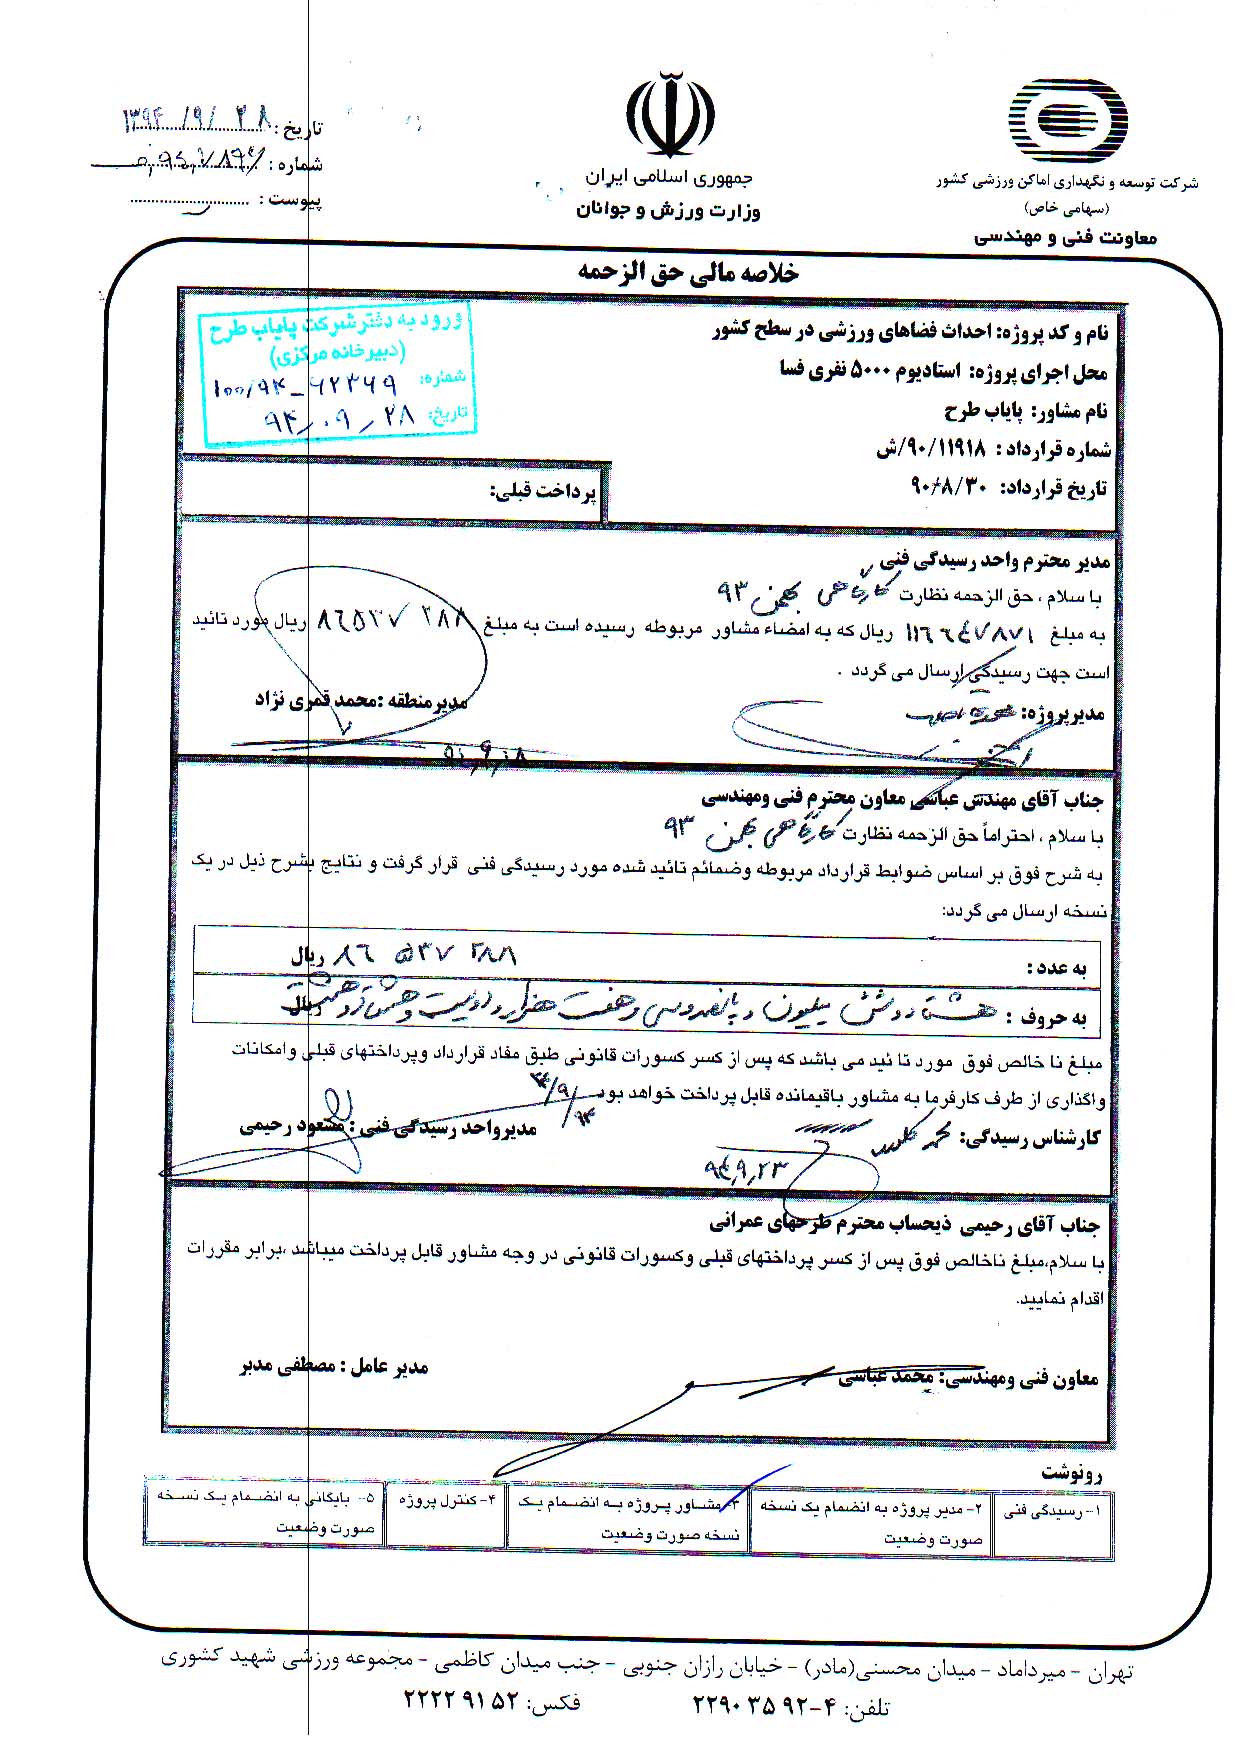 شرکت توسعه و نگهداری اماکن ورزشی کشور
(سهامی خاص)
معاونت فنی و مهندسی
جمهوری اسلامی ایران
وزارت ورزش و جوانان
تاریخ: ۱۳۹۴/۹/۲۸
شماره:
پیوست:
خلاصه مالی حق الزحمه
نام و کد پروژه: احداث فضاهای ورزشی در سطح کشور
محل اجرای پروژه: استادیوم ۵۰۰۰ نفری فسا
نام مشاور: پایاب طرح
شماره قرارداد: ۹۰/۱۱۹۱۸/ش
تاریخ قرارداد: ۹۰/۸/۳۰
ورود به دفتر شرکت پایاب طرح
(دبیرخانه مرکزی)
شماره: ۱۰۰/۹۴-۶۲۳۶۹
تاریخ: ۹۴/۰۹/۲۸
پرداخت قبلی:
مدیر محترم واحد رسیدگی فنی
با سلام ، حق الزحمه نظارت کارگاهی بهمن ۹۳
به مبلغ ۱۱۶۶۴۷۸۷۱ ریال که به امضاء مشاور مربوطه رسیده است به مبلغ ۸۶۵۳۷۲۸۸ ریال مورد تائید
است جهت رسیدگی ارسال می گردد .
مدیرپروژه:
مدیرمنطقه :محمد قمری نژاد
جناب آقای مهندس عباسی معاون محترم فنی ومهندسی
با سلام ، احتراماً حق الزحمه نظارت کارگاهی بهمن ۹۳
به شرح فوق بر اساس ضوابط قرارداد مربوطه وضمائم تائید شده مورد رسیدگی فنی قرار گرفت و نتایج بشرح ذیل در یک
نسخه ارسال می گردد:
به عدد : ۸۶ ۵۳۷ ۲۸۸ ریال
به حروف : هشتاد و شش میلیون و پانصد و سی و هفت هزار و دویست و هشتاد و هشت ریال
مبلغ نا خالص فوق مورد تا ئید می باشد که پس از کسر کسورات قانونی طبق مفاد قرارداد وپرداختهای قبلی وامکانات
واگذاری از طرف کارفرما به مشاور باقیمانده قابل پرداخت خواهد بود
کارشناس رسیدگی:
مدیرواحد رسیدگی فنی : مسعود رحیمی
۹۴,۹,۲۳
جناب آقای رحیمی ذیحساب محترم طرحهای عمرانی
با سلام،مبلغ ناخالص فوق پس از کسر پرداختهای قبلی وکسورات قانونی در وجه مشاور قابل پرداخت میباشد ،برابر مقررات
اقدام نمایید.
معاون فنی ومهندسی: محمد عباسی
مدیر عامل : مصطفی مدبر
رونوشت
۱- رسیدگی فنی
۲- مدیر پروژه به انضمام یک نسخه
صورت وضعیت
۳- مشاور پروژه به انضمام یک
نسخه صورت وضعیت
۴- کنترل پروژه
۵- بایگانی به انضمام یک نسخه
صورت وضعیت
تهران - میرداماد - میدان محسنی(مادر) - خیابان رازان جنوبی - جنب میدان کاظمی - مجموعه ورزشی شهید کشوری
تلفن: ۴-۲۲۹۰۳۵۹۲ فکس: ۲۲۲۲۹۱۵۲